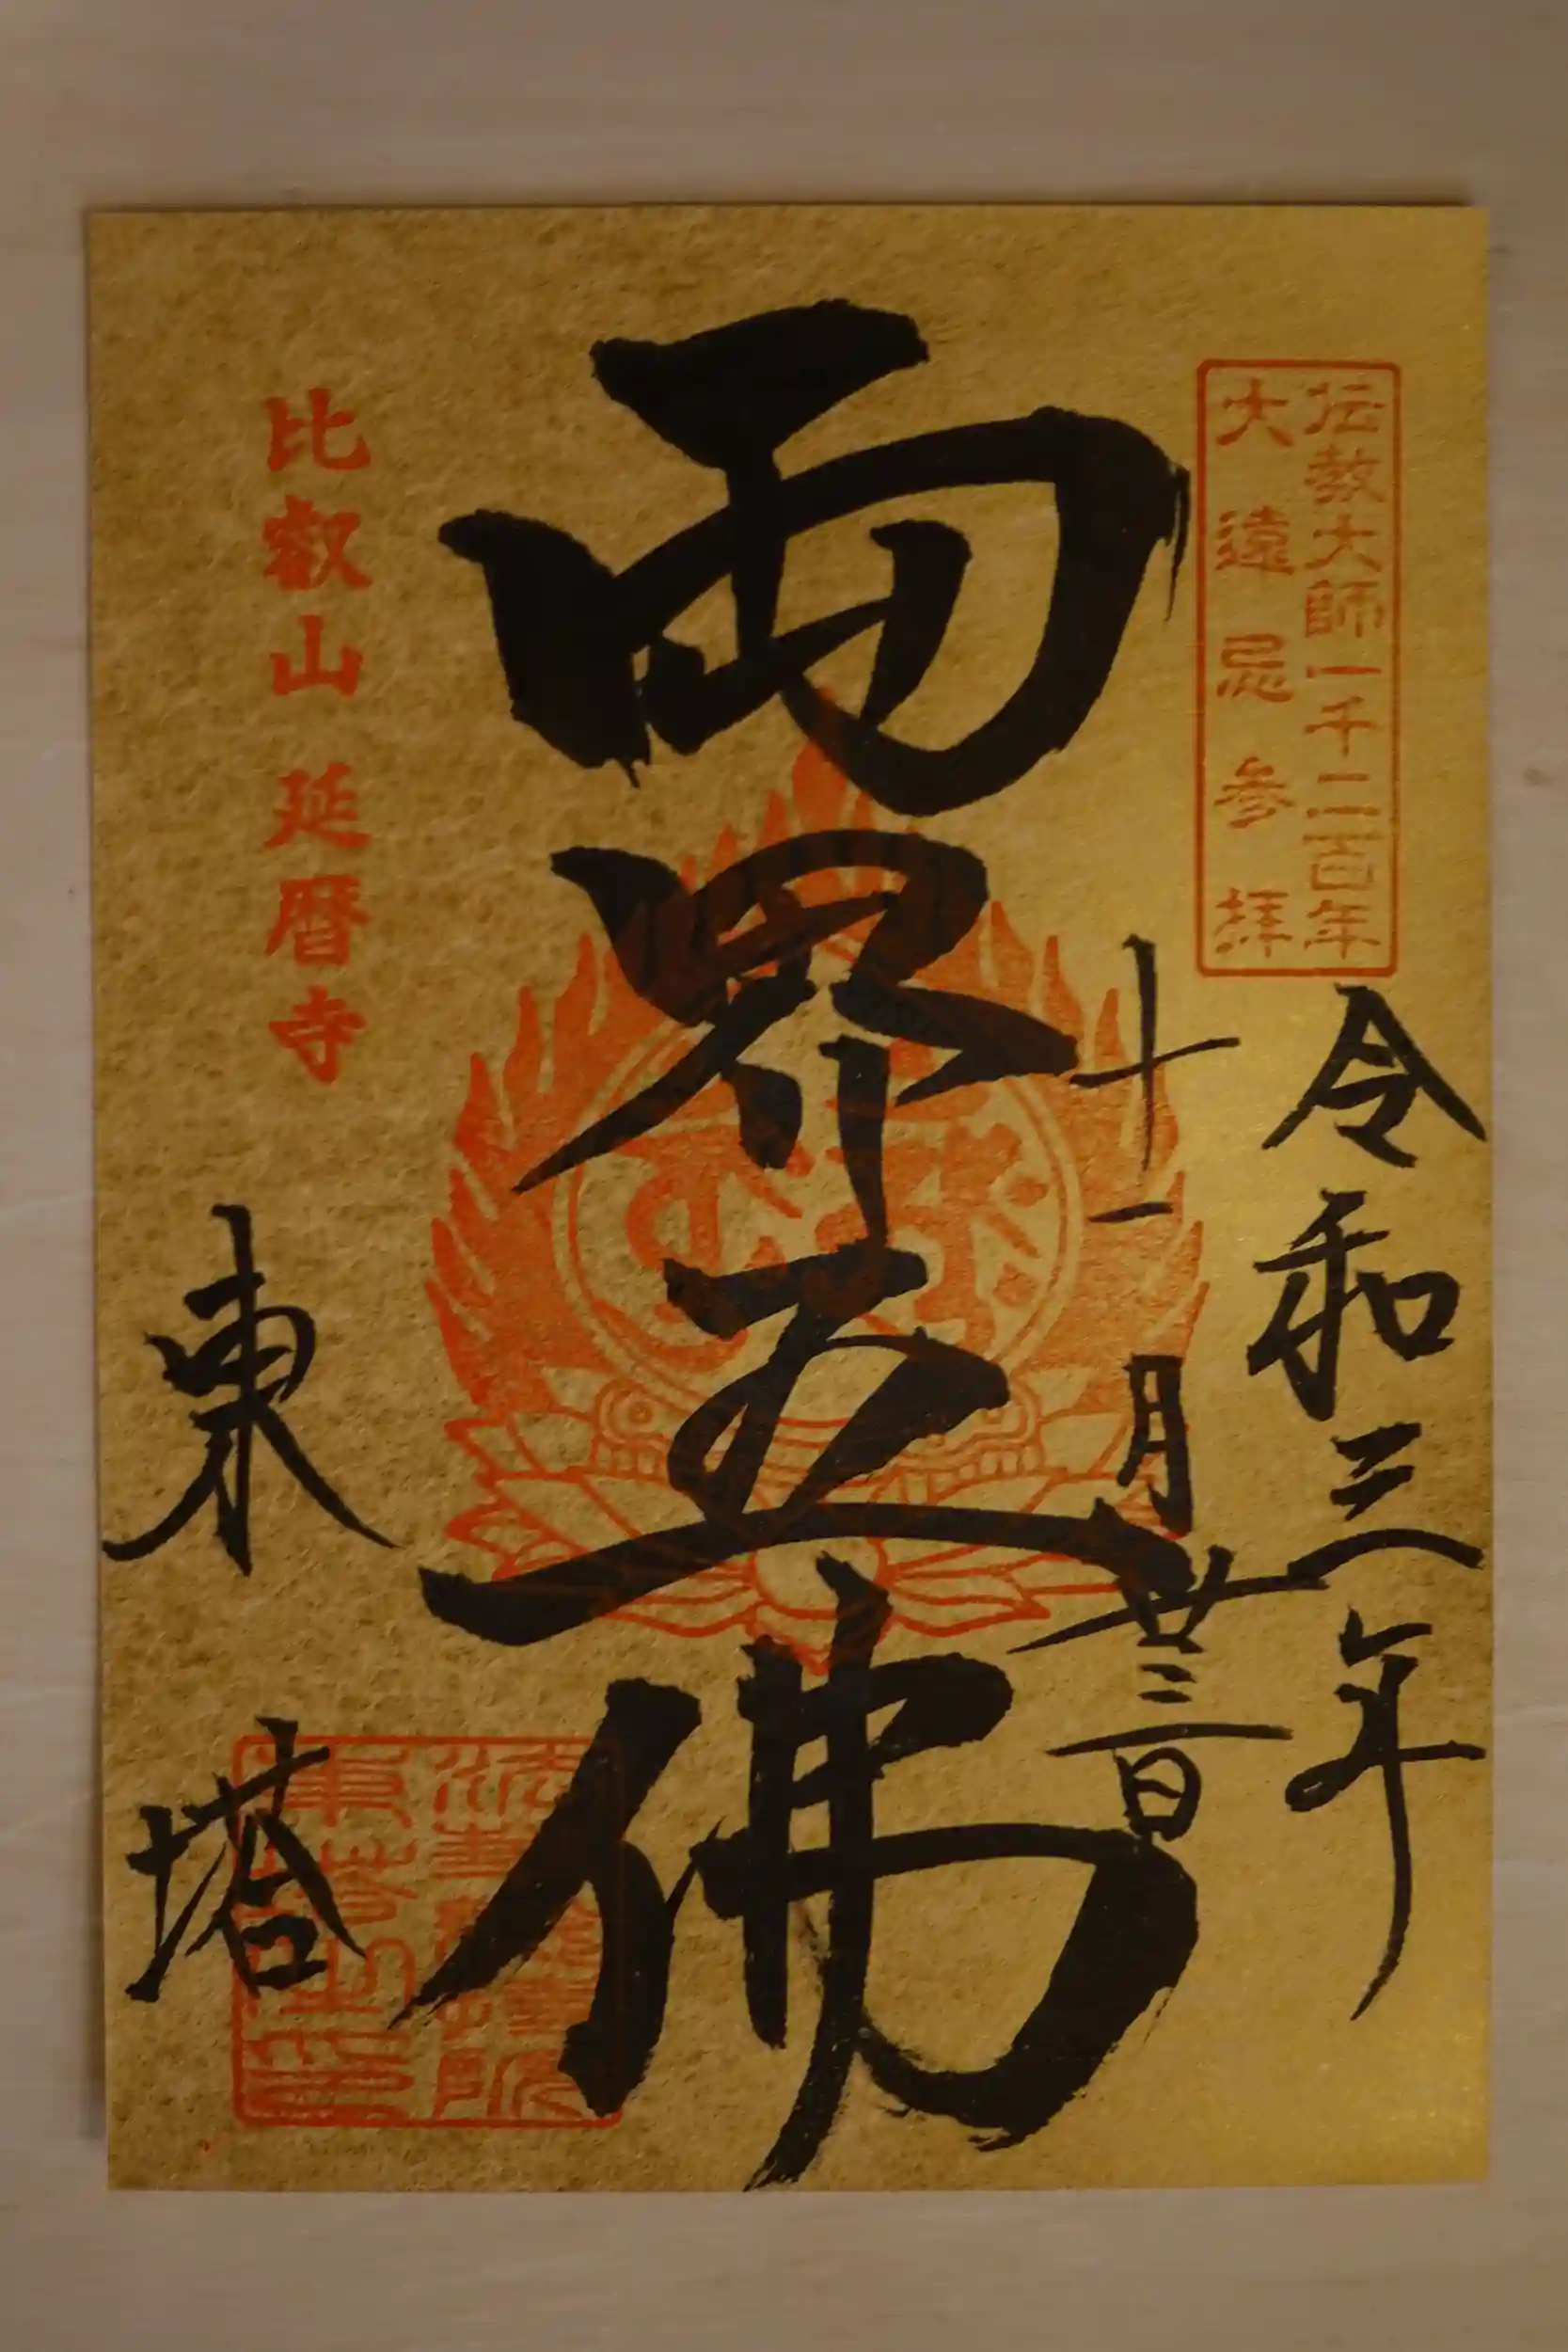 伝教大師一千二百年
大遠忌参拝
令和三年
十一月廿三日
両界五佛
比叡山 延暦寺
東塔